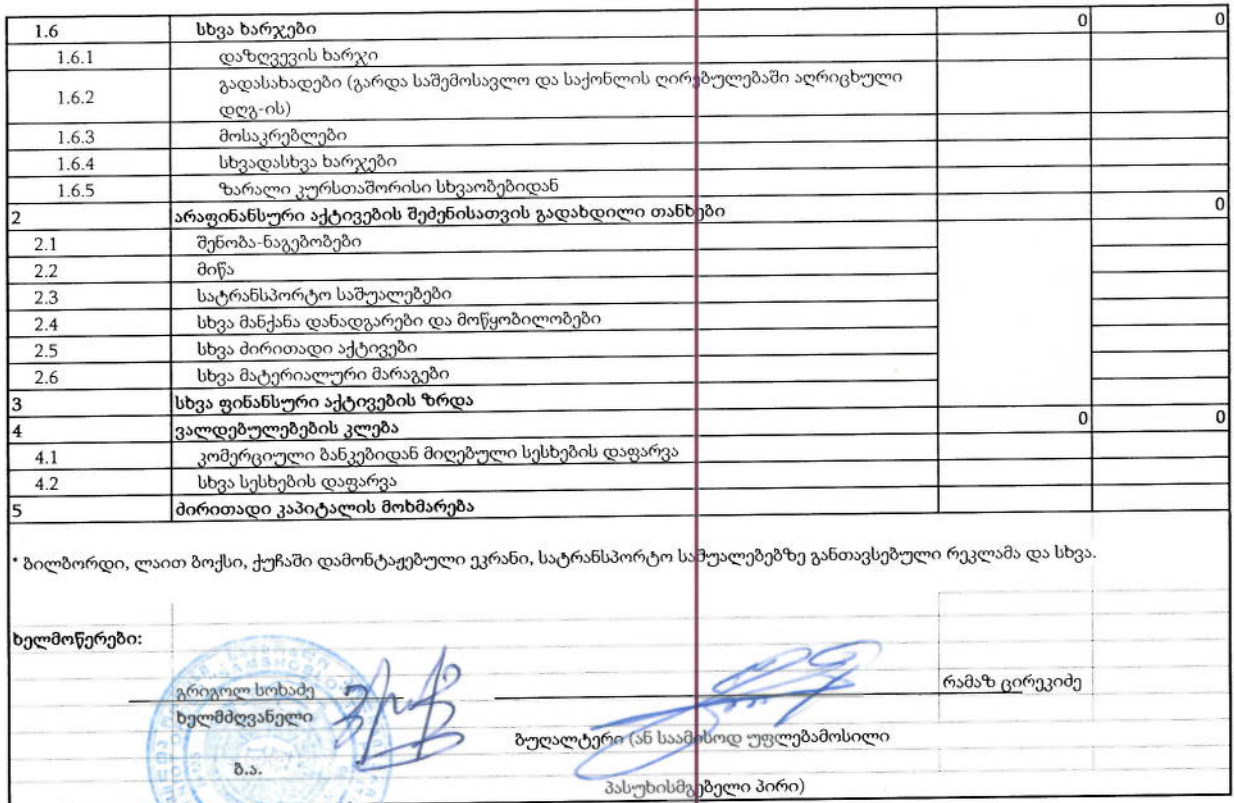 1.6 სხვა ხარჯები 0 0
1.6.1 დაზღვევის ხარჯი
1.6.2 გადასახადები (გარდა საშემოსავლო და საქონლის ღირებულებაში აღრიცხული
დღგ-ის)
1.6.3 მოსაკრებლები
1.6.4 სხვადასხვა ხარჯები
1.6.5 ზარალი კურსთაშორისი სხვაობებიდან
2 არაფინანსური აქტივების შეძენისათვის გადახდილი თანხები 0
2.1 შენობა-ნაგებობები
2.2 მიწა
2.3 სატრანსპორტო საშუალებები
2.4 სხვა მანქანა დანადგარები და მოწყობილობები
2.5 სხვა ძირითადი აქტივები
2.6 სხვა მატერიალური მარაგები
3 სხვა ფინანსური აქტივების ზრდა
4 ვალდებულებების კლება 0 0
4.1 კომერციული ბანკებიდან მიღებული სესხების დაფარვა
4.2 სხვა სესხების დაფარვა
5 ძირითადი კაპიტალის მოხმარება
* ბილბორდი, ლაით ბოქსი, ქუჩაში დამონტაჟებული ეკრანი, სატრანსპორტო საშუალებებზე განთავსებული რეკლამა და სხვა.
ხელმოწერები:
გრიგოლ სოხაძე რამაზ ცირეკიძე
ხელმძღვანელი
ბუღალტერი (ან საამისოდ უფლებამოსილი
ბ.ა.
პასუხისმგებელი პირი)